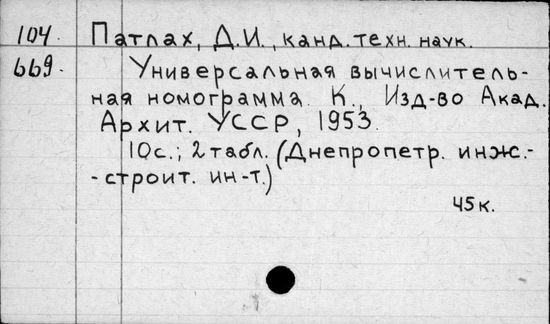 104. Патлах, Д.И., канд. техн. наук.
669. Универсальная вычислитель-
ная номограмма. К., Изд-во Акад.
Архит. УССР, 1953.
10с.; 2 табл. (Днепропетр. инж.-
-строит. ин-т.)
45к.